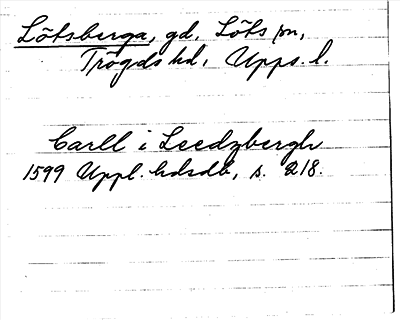 Lötsberga, gd, Löts sn,
Trögds hd, Upps. l.
Carll i Leedzbergh
1599 Uppl. hdsdb, s. 218.